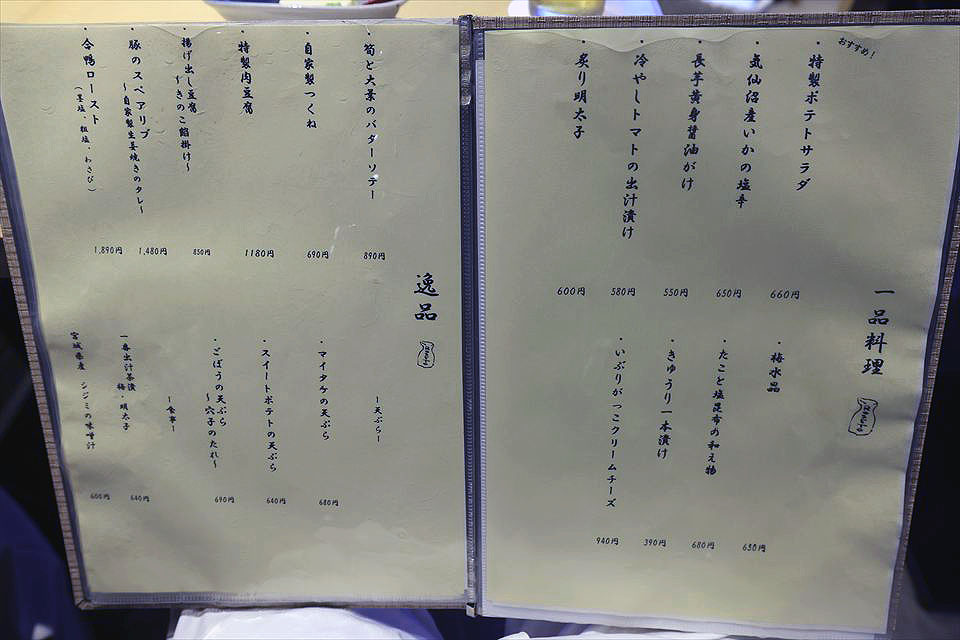 一品料理
おすすめ!
・特製ポテトサラダ
660円
・気仙沼産いかの塩辛
650円
・長芋黄身醤油がけ
550円
・冷やしトマトの出汁漬け
580円
・炙り明太子
600円
・梅水晶
650円
・たこと塩昆布の和え物
680円
・きゅうり一本漬け
390円
・いぶりがっこクリームチーズ
940円
逸品
・筍と大葉のバターソテー
890円
・自家製つくね
690円
・特製肉豆腐
1180円
・揚げ出し豆腐
〜きのこ餡掛け〜
850円
・豚のスペアリブ
〜自家製生姜焼きのタレ〜
1,480円
・合鴨ロースト
(藁塩・粗塩・わさび)
1,890円
ー天ぷらー
・マイタケの天ぷら
680円
・スイートポテトの天ぷら
640円
・ごぼうの天ぷら
〜穴子のたれ〜
690円
ー食事ー
一番出汁茶漬
梅・明太子
640円
宮城県産 シジミの味噌汁
600円